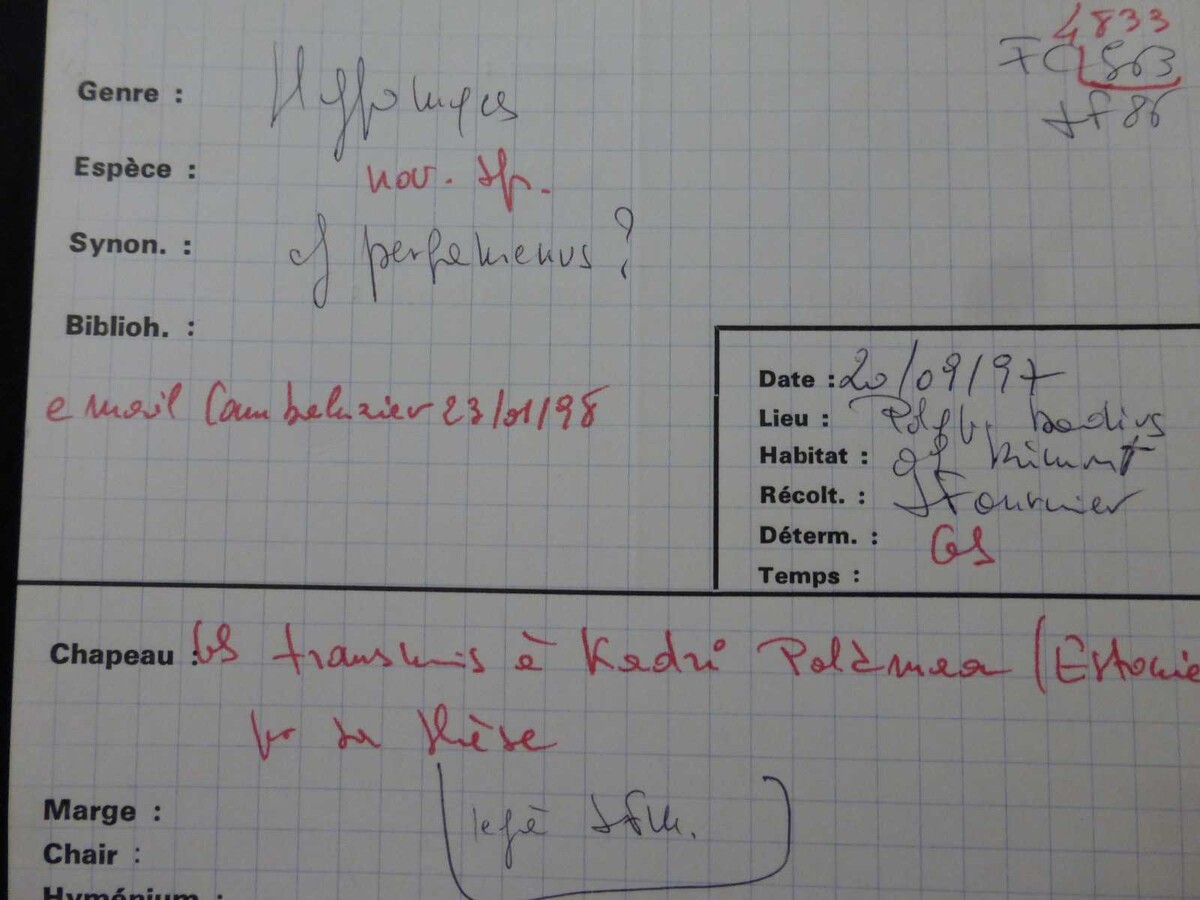 4833
FC 563
JF 86
Genre : Hypomyces
Espèce : nov. sp.
Synon. : cf pergamenus ?
Biblioh. :
e mail Cambeluzier 23/01/98
Date : 20/09/97
Lieu :
Habitat :
Récolt. : J Fournier
Déterm. : GS
Temps :
Chapeau : GS transmis à Kadri Poldmaa (Estonie
pr sa thèse
Marge :
Chair :
Hyménium :